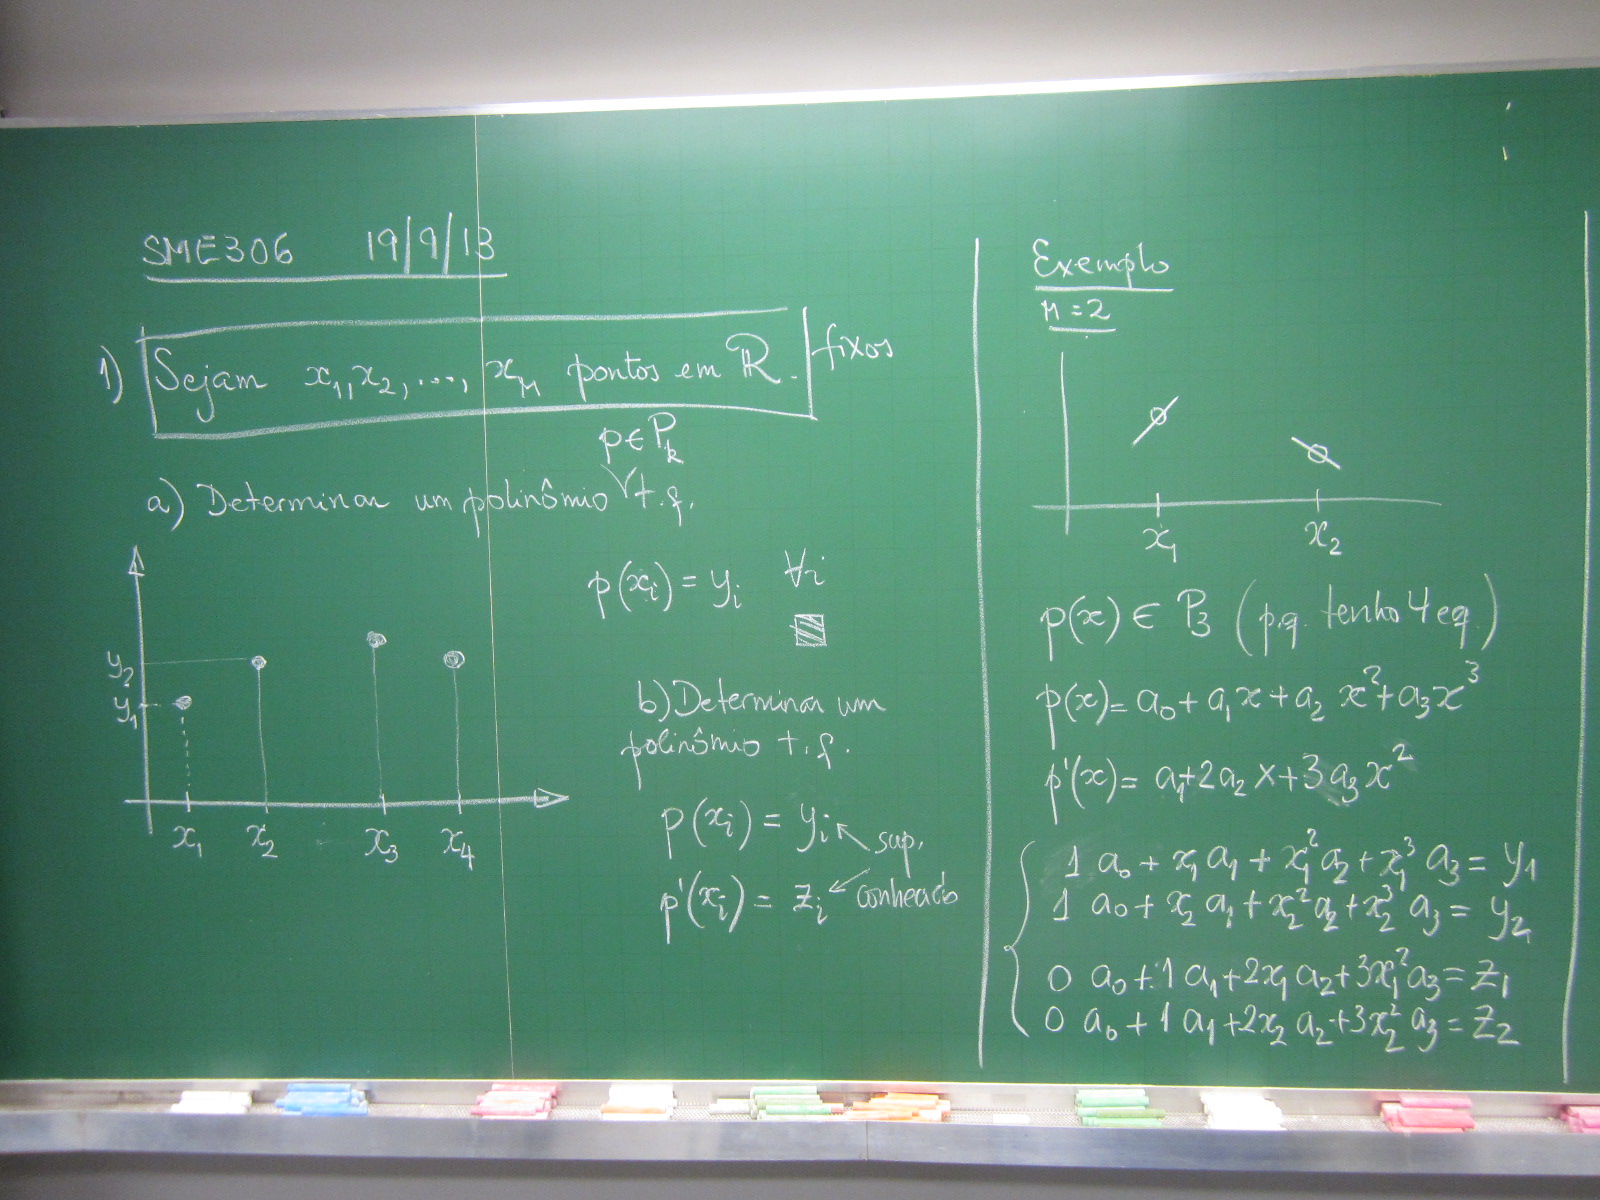 SME306 19/9/13
1) Sejam x₁, x₂, ..., x_M pontos em ℝ. fixos
p ∈ P_k
a) Determinar um polinômio t.q.
p(x_i) = y_i ∀i
y₂
y₁
x₁ x₂ x₃ x₄
b) Determinar um
polinômio t.q.
p(x_i) = y_i sup.
p'(x_i) = z_i conhecido
Exemplo
M = 2
x₁ x₂
p(x) ∈ P₃ (p.q. tenho 4 eq.)
p(x) = a₀ + a₁x + a₂ x² + a₃x³
p'(x) = a₁ + 2a₂x + 3a₃x²
1 a₀ + x₁ a₁ + x₁² a₂ + x₁³ a₃ = y₁
1 a₀ + x₂ a₁ + x₂² a₂ + x₂³ a₃ = y₂
0 a₀ + 1 a₁ + 2x₁ a₂ + 3x₁² a₃ = z₁
0 a₀ + 1 a₁ + 2x₂ a₂ + 3x₂² a₃ = z₂